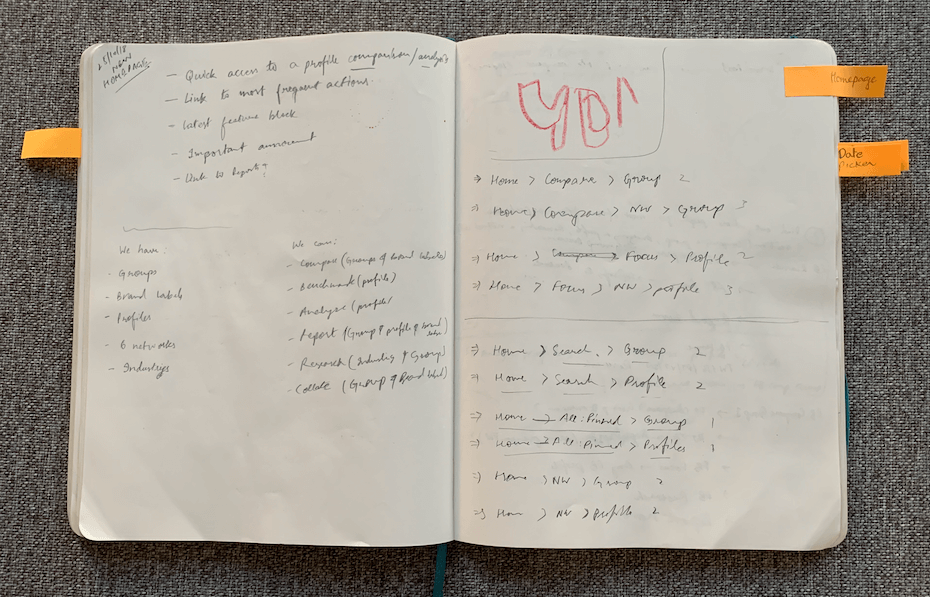 NEW
HOMEPAGE
- Quick access to a profile comparison/analysis
- Link to most frequent actions.
- Latest feature block
- Important announcement
- Link to Reports?
We have:
- Groups
- Brand Labels
- Profiles
- 6 networks
- Industrys
We can:
- Compare (Groups & Brand labels)
- Benchmark (profiles)
- Analyze (profiles
- Report (Group & profile & Brand label)
- Research (Industry & Group)
- Collate (Group & Brand label)
Homepage
Date
Picker
⇒ Home > Compare > Group 2
⇒ Home > Compare > NW > Group 3
⇒ Home > Compare > Focus > Profile 2
⇒ Home > Focus > NW > profile 3
⇒ Home > Search > Group 2
⇒ Home > Search > Profile 2
⇒ Home → All: Pinned > Group 1
⇒ Home → All: Pinned > Profiles 1
⇒ Home > NW > Group 2
⇒ Home > NW > Profile 2